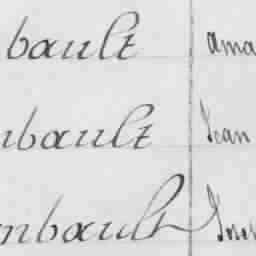 bault ama
nbault Jean
mbault Jose